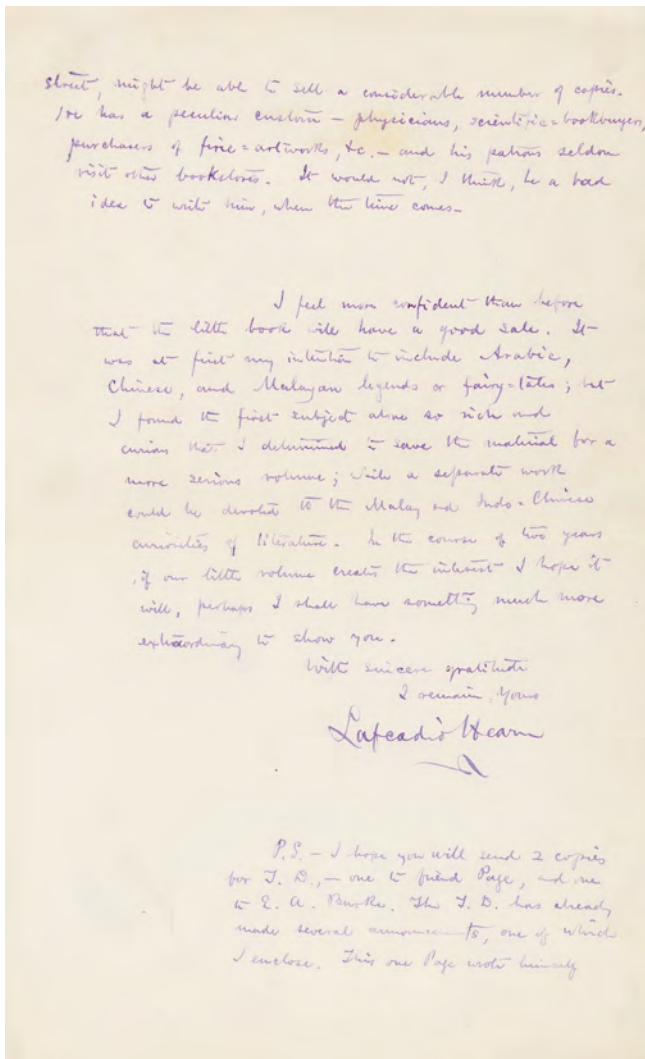 street, might be able to sell a considerable number of copies.
He has a peculiar custom – physicians, scientific=bookbuyers,
purchasers of fine=artworks, &c. – and his patrons seldom
visit other bookstores. It would not, I think, be a bad
idea to write him, when the time comes –
I feel more confident than before
that the little book will have a good sale. It
was at first my intention to include Arabic,
Chinese, and Malayan legends or fairy=tales; but
I found the first subject alone so rich and
curious that I determined to save the material for a
more serious volume; while a separate work
could be devoted to the Malay and Indo=Chinese
curiosities of literature. In the course of two years
, if our little volume creates the interest I hope it
will, perhaps I shall have something much more
extraordinary to show you.
With sincere gratitude
I remain, Yours
Lafcadio Hearn
P.S. – I hope you will send 2 copies
for T. D., – one to friend Page, and one
to E. A. Burke. The T. D. has already
made several announcements, one of which
I enclose. This one Page wrote himself